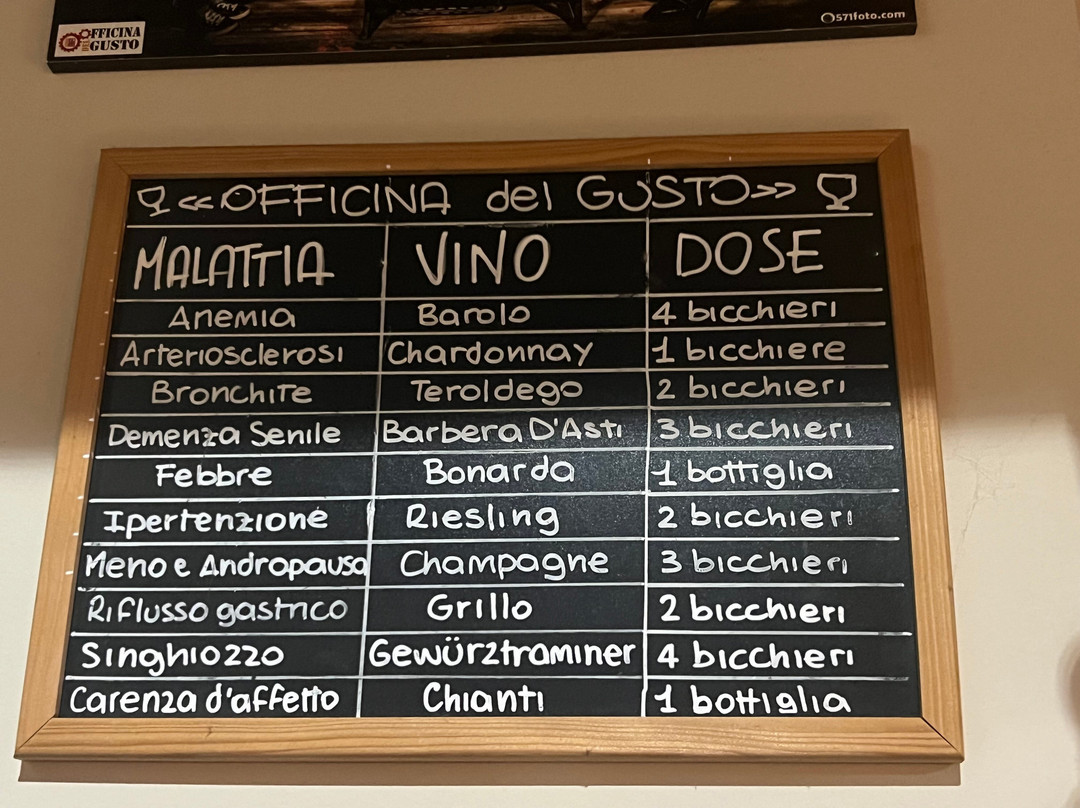 OFFICINA
GUSTO
571foto.com
«OFFICINA del GUSTO»
MALATTIA VINO DOSE
Anemia Barolo 4 bicchieri
Arteriosclerosi Chardonnay 1 bicchiere
Bronchite Teroldego 2 bicchieri
Demenza Senile Barbera D'Asti 3 bicchieri
Febbre Bonarda 1 bottiglia
Ipertenzione Riesling 2 bicchieri
Meno e Andropausa Champagne 3 bicchieri
Riflusso gastrico Grillo 2 bicchieri
Singhiozzo Gewürztraminer 4 bicchieri
Carenza d'affetto Chianti 1 bottiglia